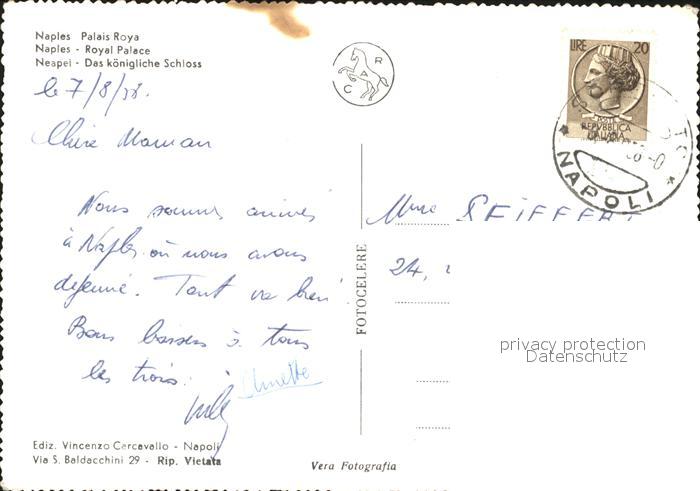 Naples Palais Roya
Naples - Royal Palace
Neapel - Das königliche Schloss
le 7/8/58.
Chère Maman
Nous sommes arrivés
à Naples où nous avons
dejeuné. Tout va bien
Bons baisers à tous
les trois.
Ediz. Vincenzo Carcavallo - Napoli
Via S. Baldacchini 29 - Rip. Vietata
C R A
FOTOCELERE
Vera Fotografia
LIRE 20
POSTE
REPVBBLICA
ITALIANA
NAPOLI
Mme SEIFFERT
24,
privacy protection
Datenschutz